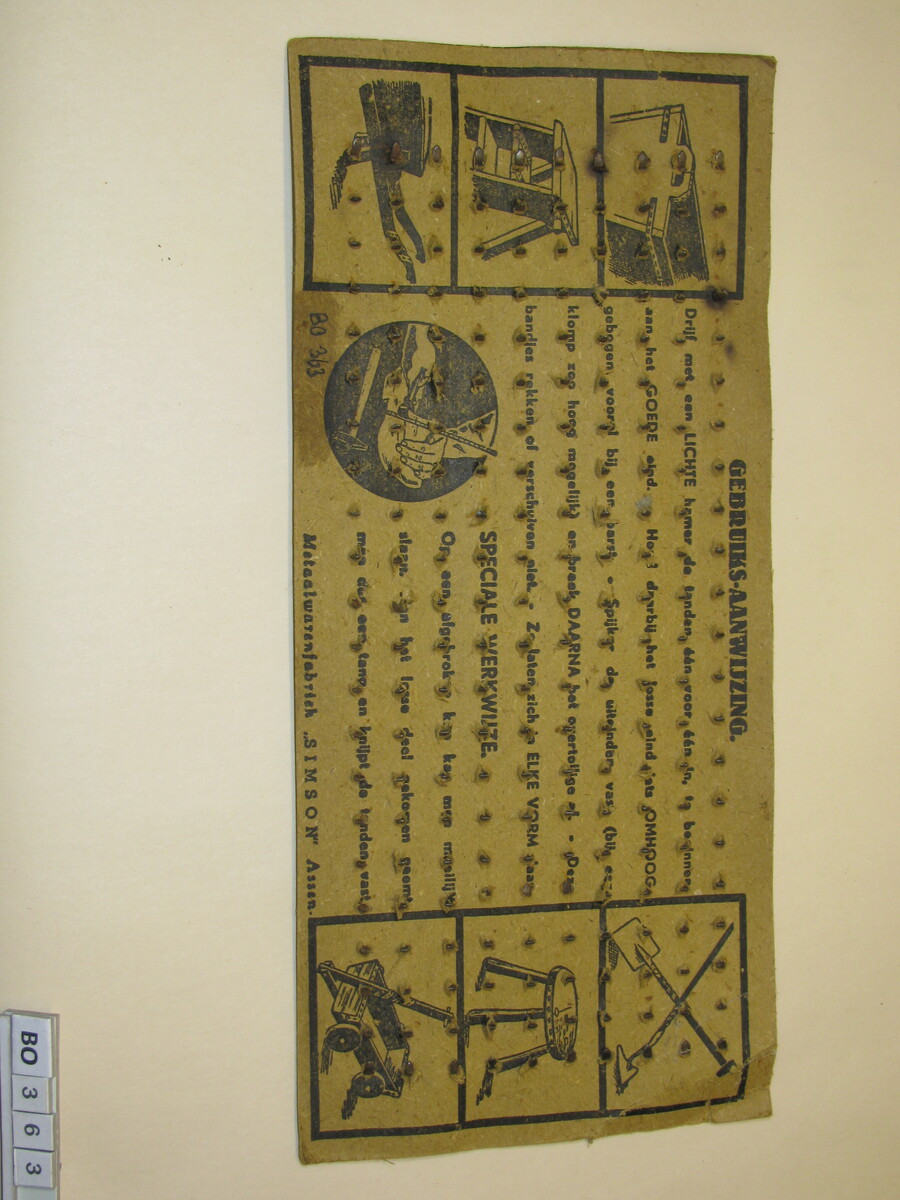 GEBRUIKS-AANWIJZING.
Drijf met een LICHTE hamer de tanden één voor één in, te beginnen
aan het GOEDE eind. Houd daarbij het losse eind iets OMHOOG
gebogen, vooral bij een barst. - Spijker de uiteinden vast (bij een
klomp zoo hoog mogelijk) en breek DAARNA het overtollige af. - Deze
bandjes rekken of verschuiven niet. - Ze laten zich in ELKE VORM slaan
SPECIALE WERKWIJZE.
Op een afgebroken kap kan men moeilijk
slaan. In het losse deel gekomen neemt
men dus een tang en knijpt de tanden vast.
Metaalwarenfabriek „SIMSON" Assen.
BO 363
BO 363